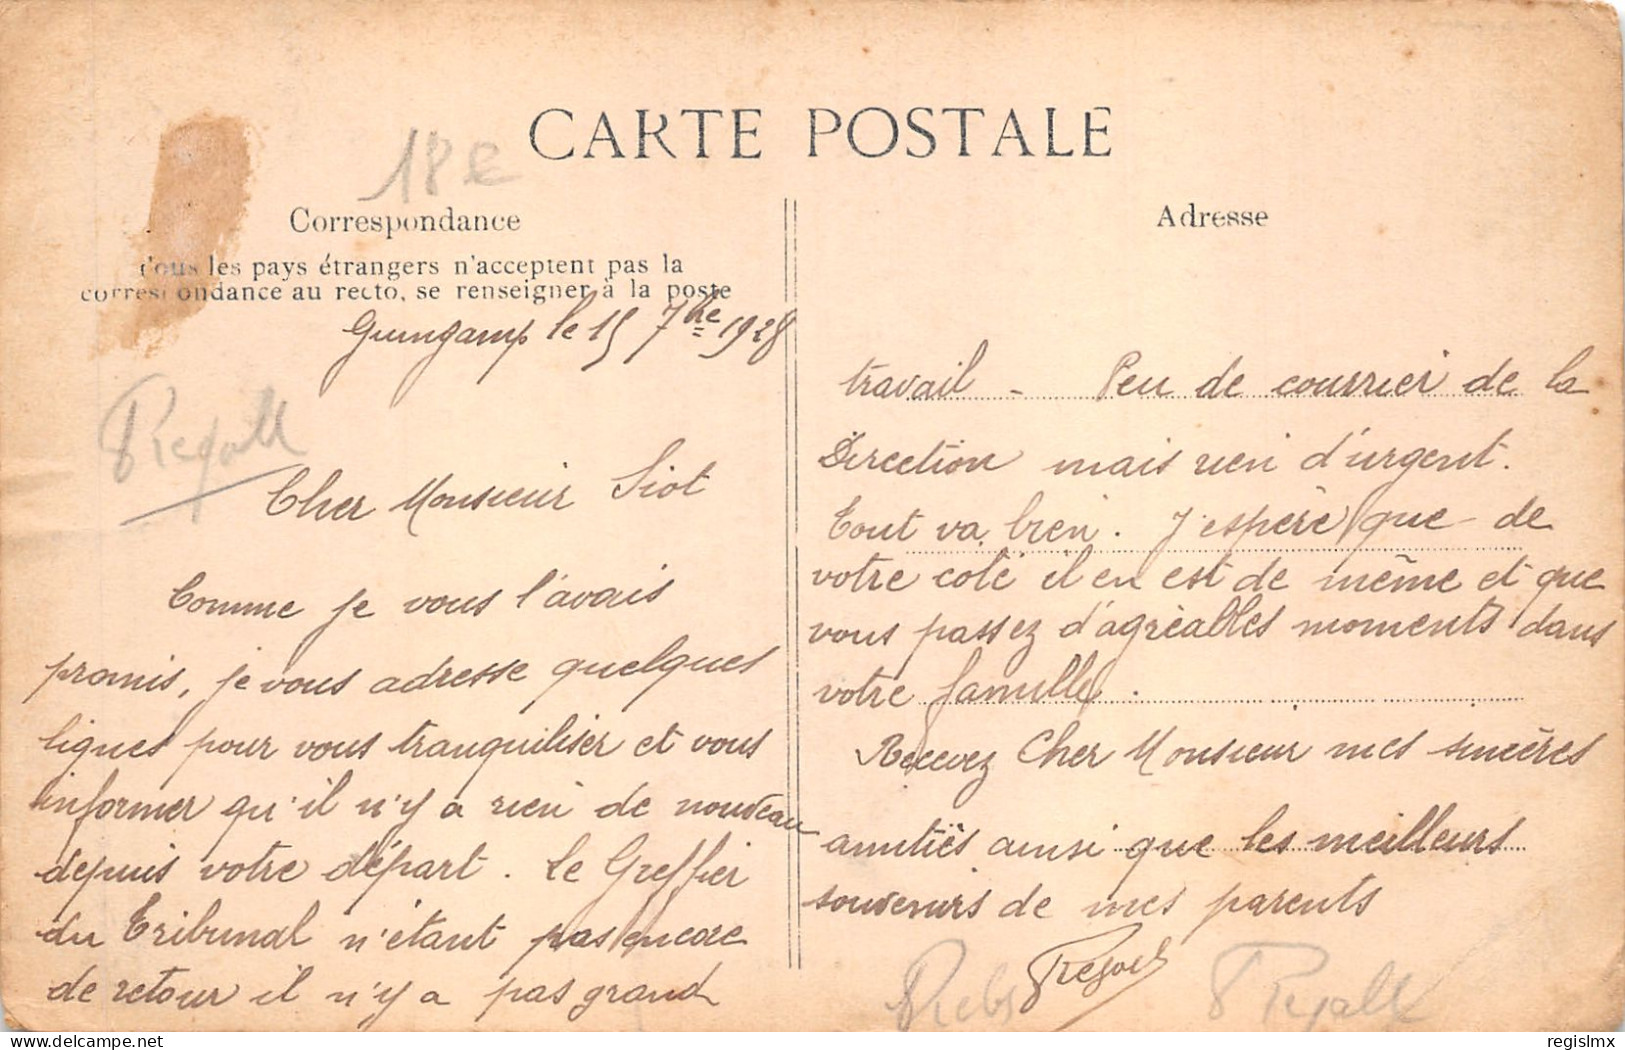 CARTE POSTALE
18e
Correspondance
Tous les pays étrangers n'acceptent pas la
correspondance au recto, se renseigner à la poste
Guingamp le 15 7bre 1928
Cher Monsieur Siot
Comme je vous l'avais
promis, je vous adresse quelques
lignes pour vous tranquiliser et vous
informer qu'il n'y a rien de nouveau
depuis votre départ. Le Greffier
du Tribunal n'étant pas encore
de retour il n'y a pas grand
Adresse
travail - Peu de courrier de la
Direction mais rien d'urgent.
Tout va bien. J'espère que de
votre coté il en est de même et que
vous passez d'agréables moments dans
votre famille.
Recevez Cher Monsieur mes sincères
amitiés ainsi que les meilleurs
souvenirs de mes parents
regislmx